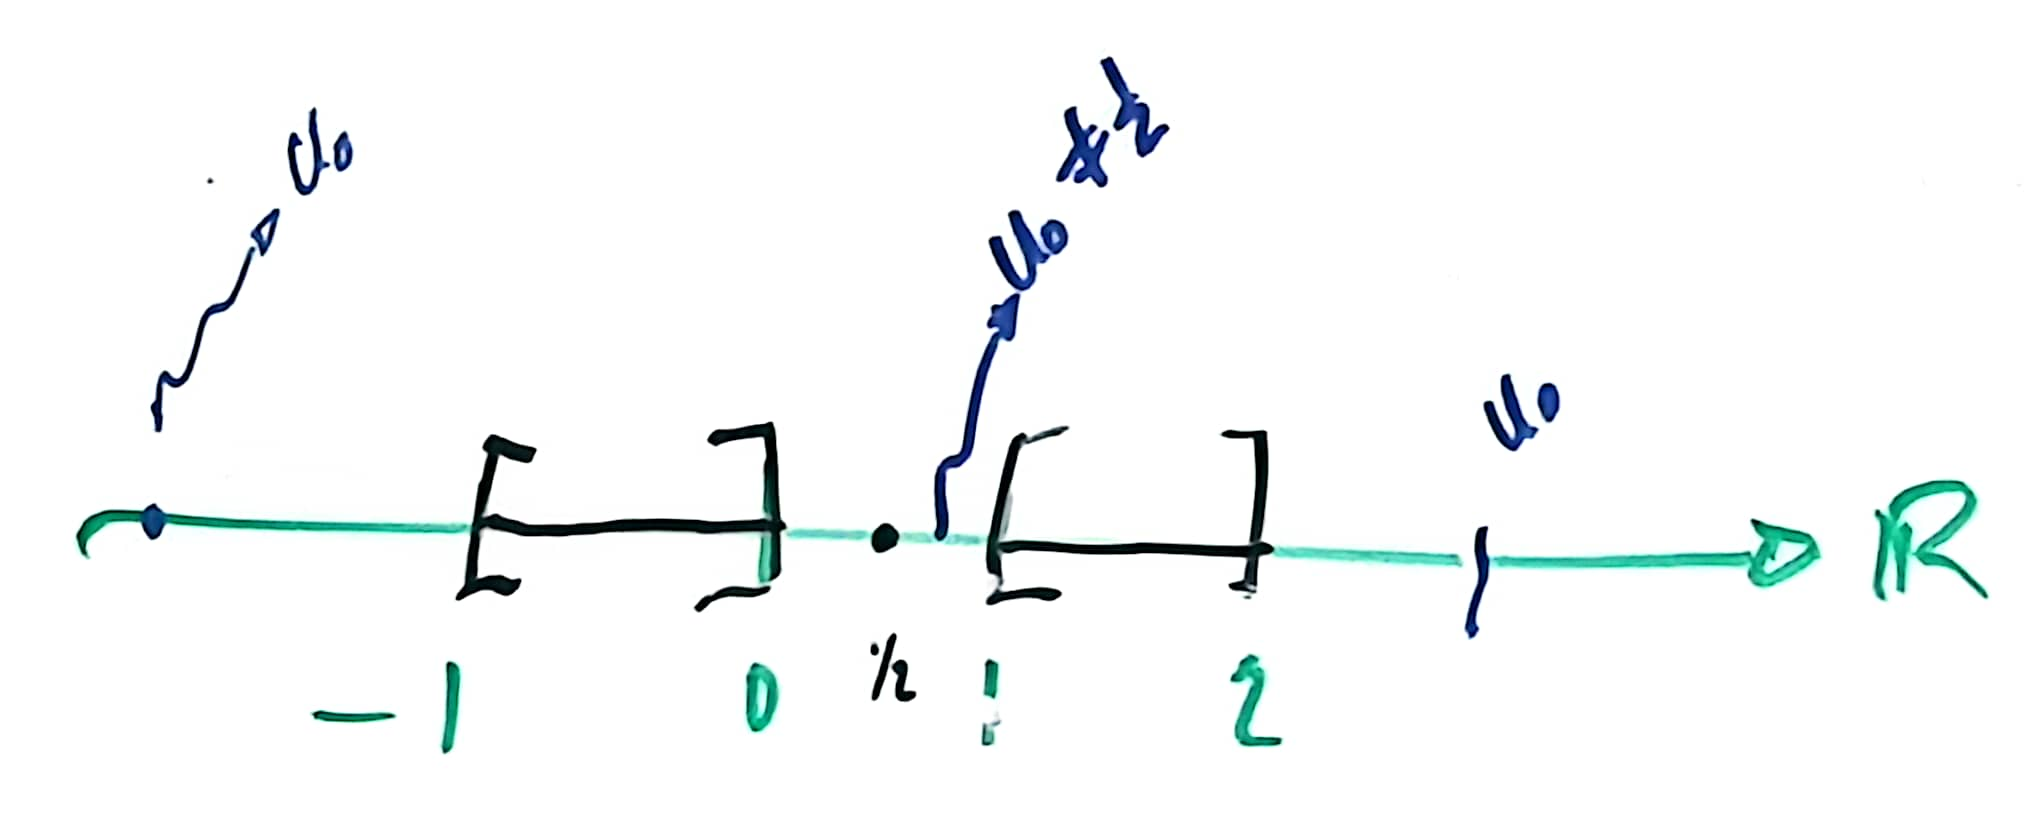 u₀
u₀ ≠ ½
u₀
[ ] [ ] ℝ
-1 0 1/2 1 2